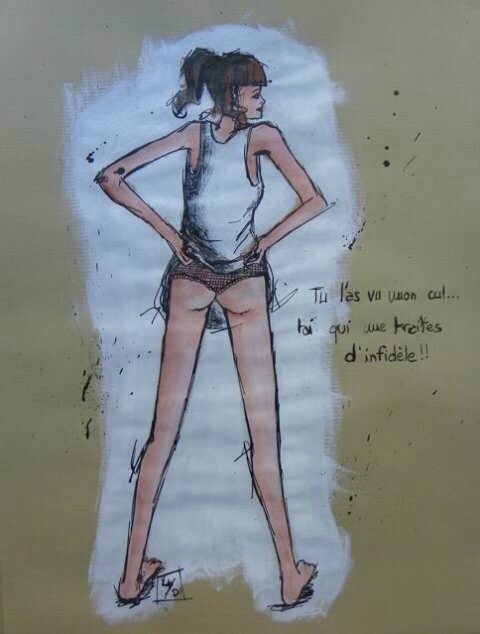 Tu l'as vu mon cul...
toi qui me traites
d'infidèle!!